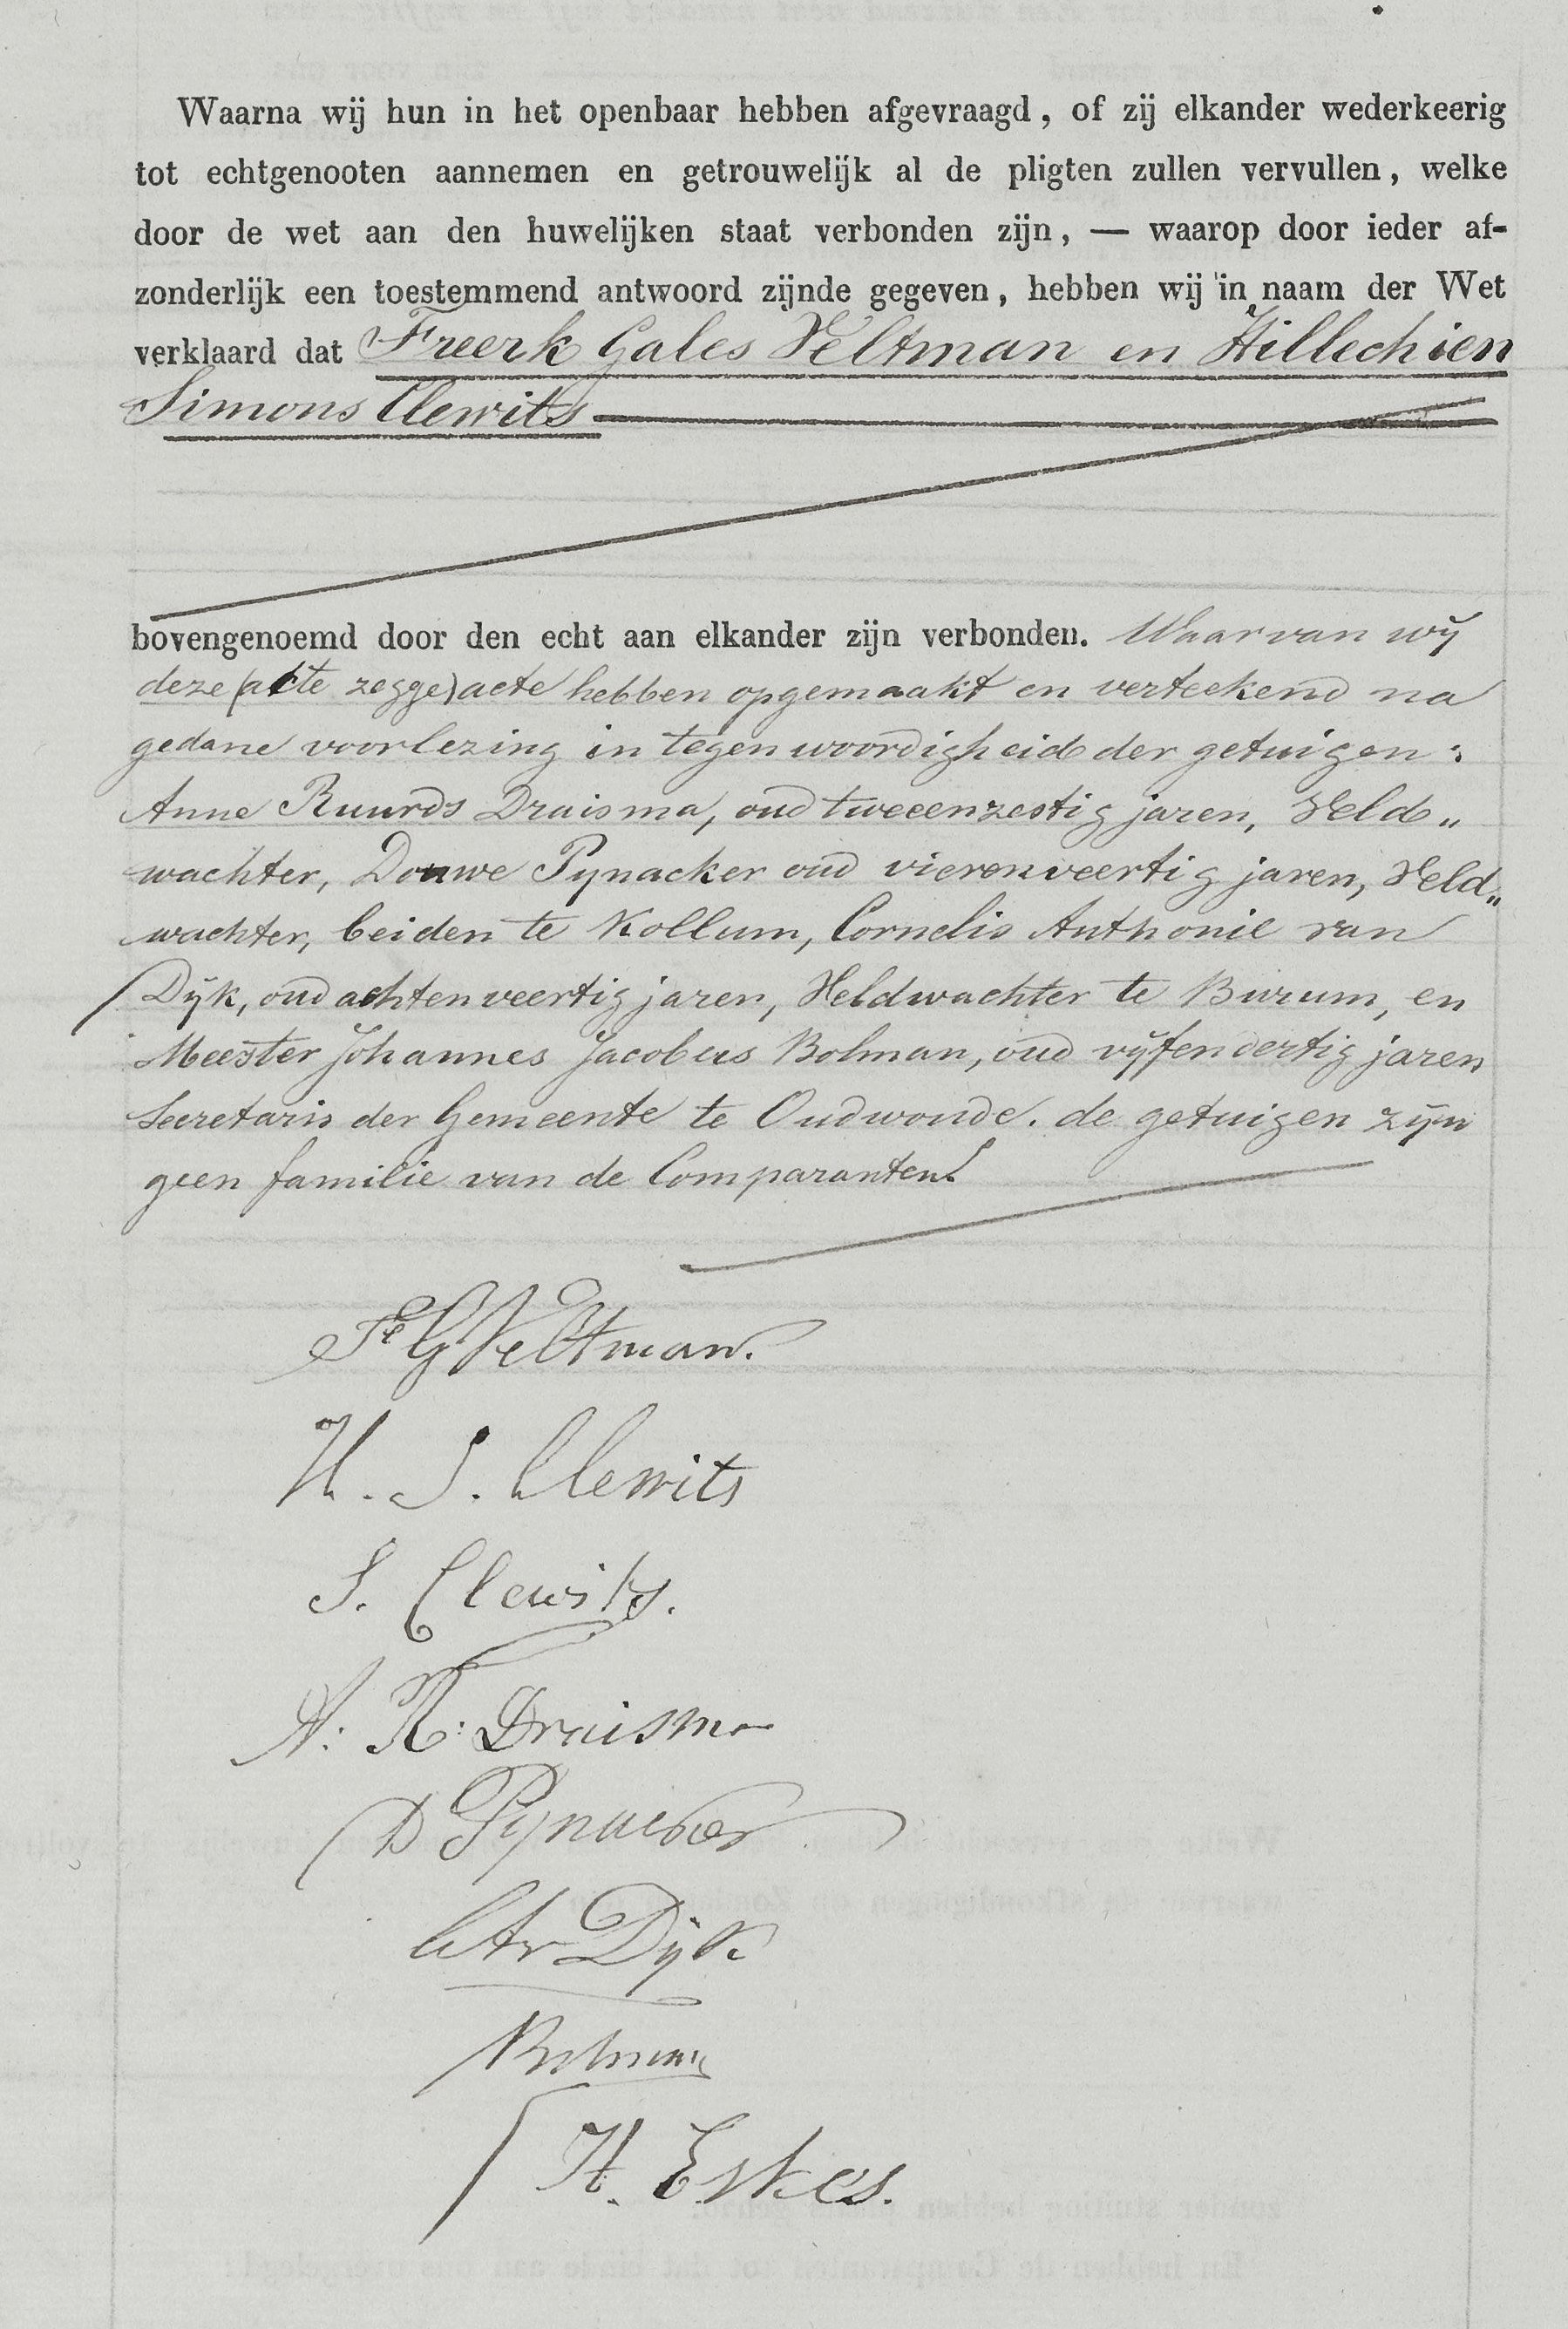 Waarna wij hun in het openbaar hebben afgevraagd, of zij elkander wederkeerig
tot echtgenooten aannemen en getrouwelijk al de pligten zullen vervullen, welke
door de wet aan den huwelijken staat verbonden zijn, — waarop door ieder af-
zonderlijk een toestemmend antwoord zijnde gegeven, hebben wij in naam der Wet
verklaard dat Freerk Gales Veltman en Hillechien
Simons Clewits
bovengenoemd door den echt aan elkander zijn verbonden. Waarvan wij
deze (akte zegge) acte hebben opgemaakt en verteekend na
gedane voorlezing in tegenwoordigheid der getuigen:
Anne Ruurds Draisma, oud tweeenzestig jaren, Veld„
wachter, Douwe Pynacker oud vierenveertig jaren, Veld„
wachter, beiden te Kollum, Cornelis Anthonie van
Dijk, oud achtenveertig jaren, Veldwachter te Burum, en
Meester Johannes Jacobus Bolman, oud vijfendertig jaren
Secretaris der Gemeente te Oudwoude. de getuigen zijn
geen familie van de Comparanten.
Fe G Veltman.
H. S. Clewits
S. Clewits.
A: R: Draisma
D Pynacker
CAv Dijk
Bolman
H. Eskes.